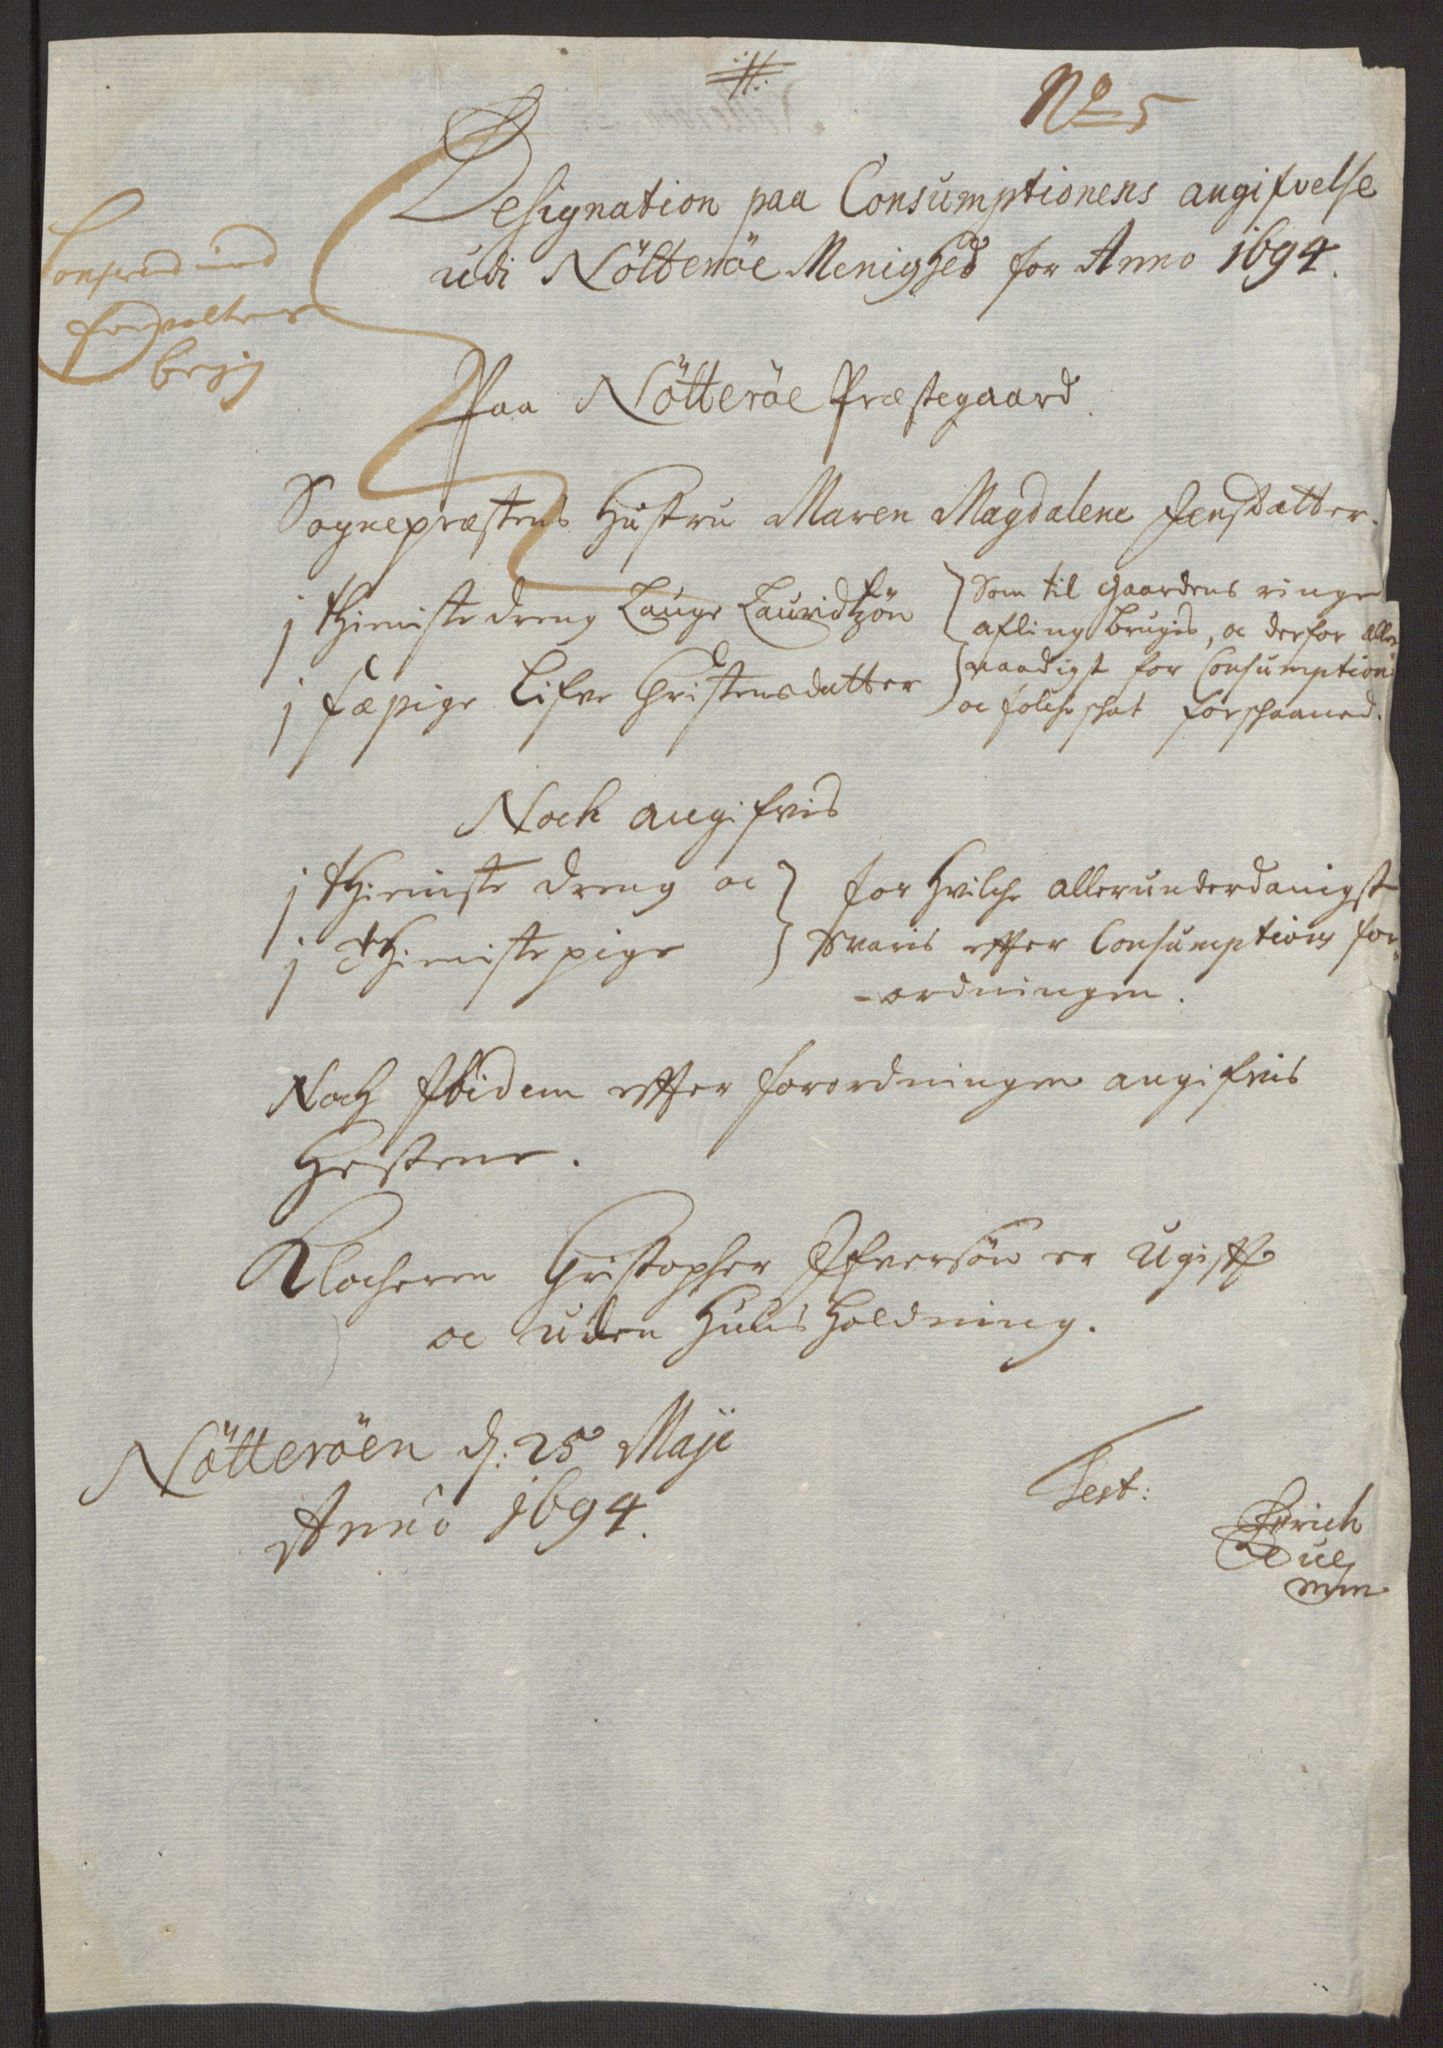 No 5
Designation paa Consumptionens angifvelse
udi Nötteröe Menighed for Anno 1694.
Paa Nötteröe Præstegaard.
Sognepræstens Hustru Maren Magdalene Jensdatter.
j thieniste dreng Lauge Lauridtzön
j fæpige Lifve Christensdatter
Som til Gaardens ringe
afling brugis, oc derfor aller
naadigst for Consumption
oc folcheschat forschaaned.
Noch angifvis
j thieniste dreng oc
j thienistepige
for hvilche allerunderdanigst
Svaris effter Consumptions for-
-ordningen.
Noch Ibidem effter forordningen angifvis
Hestene.
Klocheren Christopher Ifversön er Ugifft
oc uden Huusholdning.
Nötteröen d: 25 Maji
Anno 1694.
Test:
mm